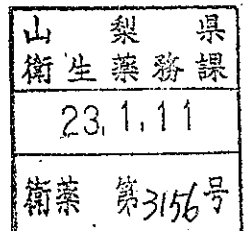 山梨県
衛生薬務課
23.1.11
衛薬 第3156号